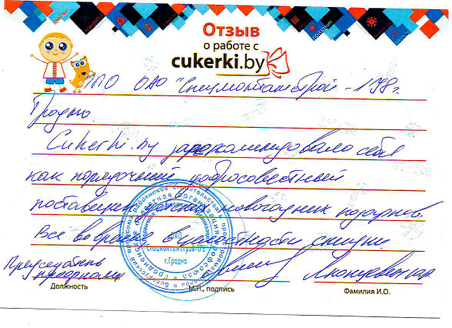 Отзыв
о работе с
cukerki.by
ППО ОАО "Спецмонтажстрой-198 г.
Гродно.
Cukerki.by зарекомендовало себя
как порядочный добросовестный
поставщик детских новогодних подарков.
Все вопросы
Председатель
профкома
г.Гродно
Должность
М.П., подпись
Фамилия И.О.